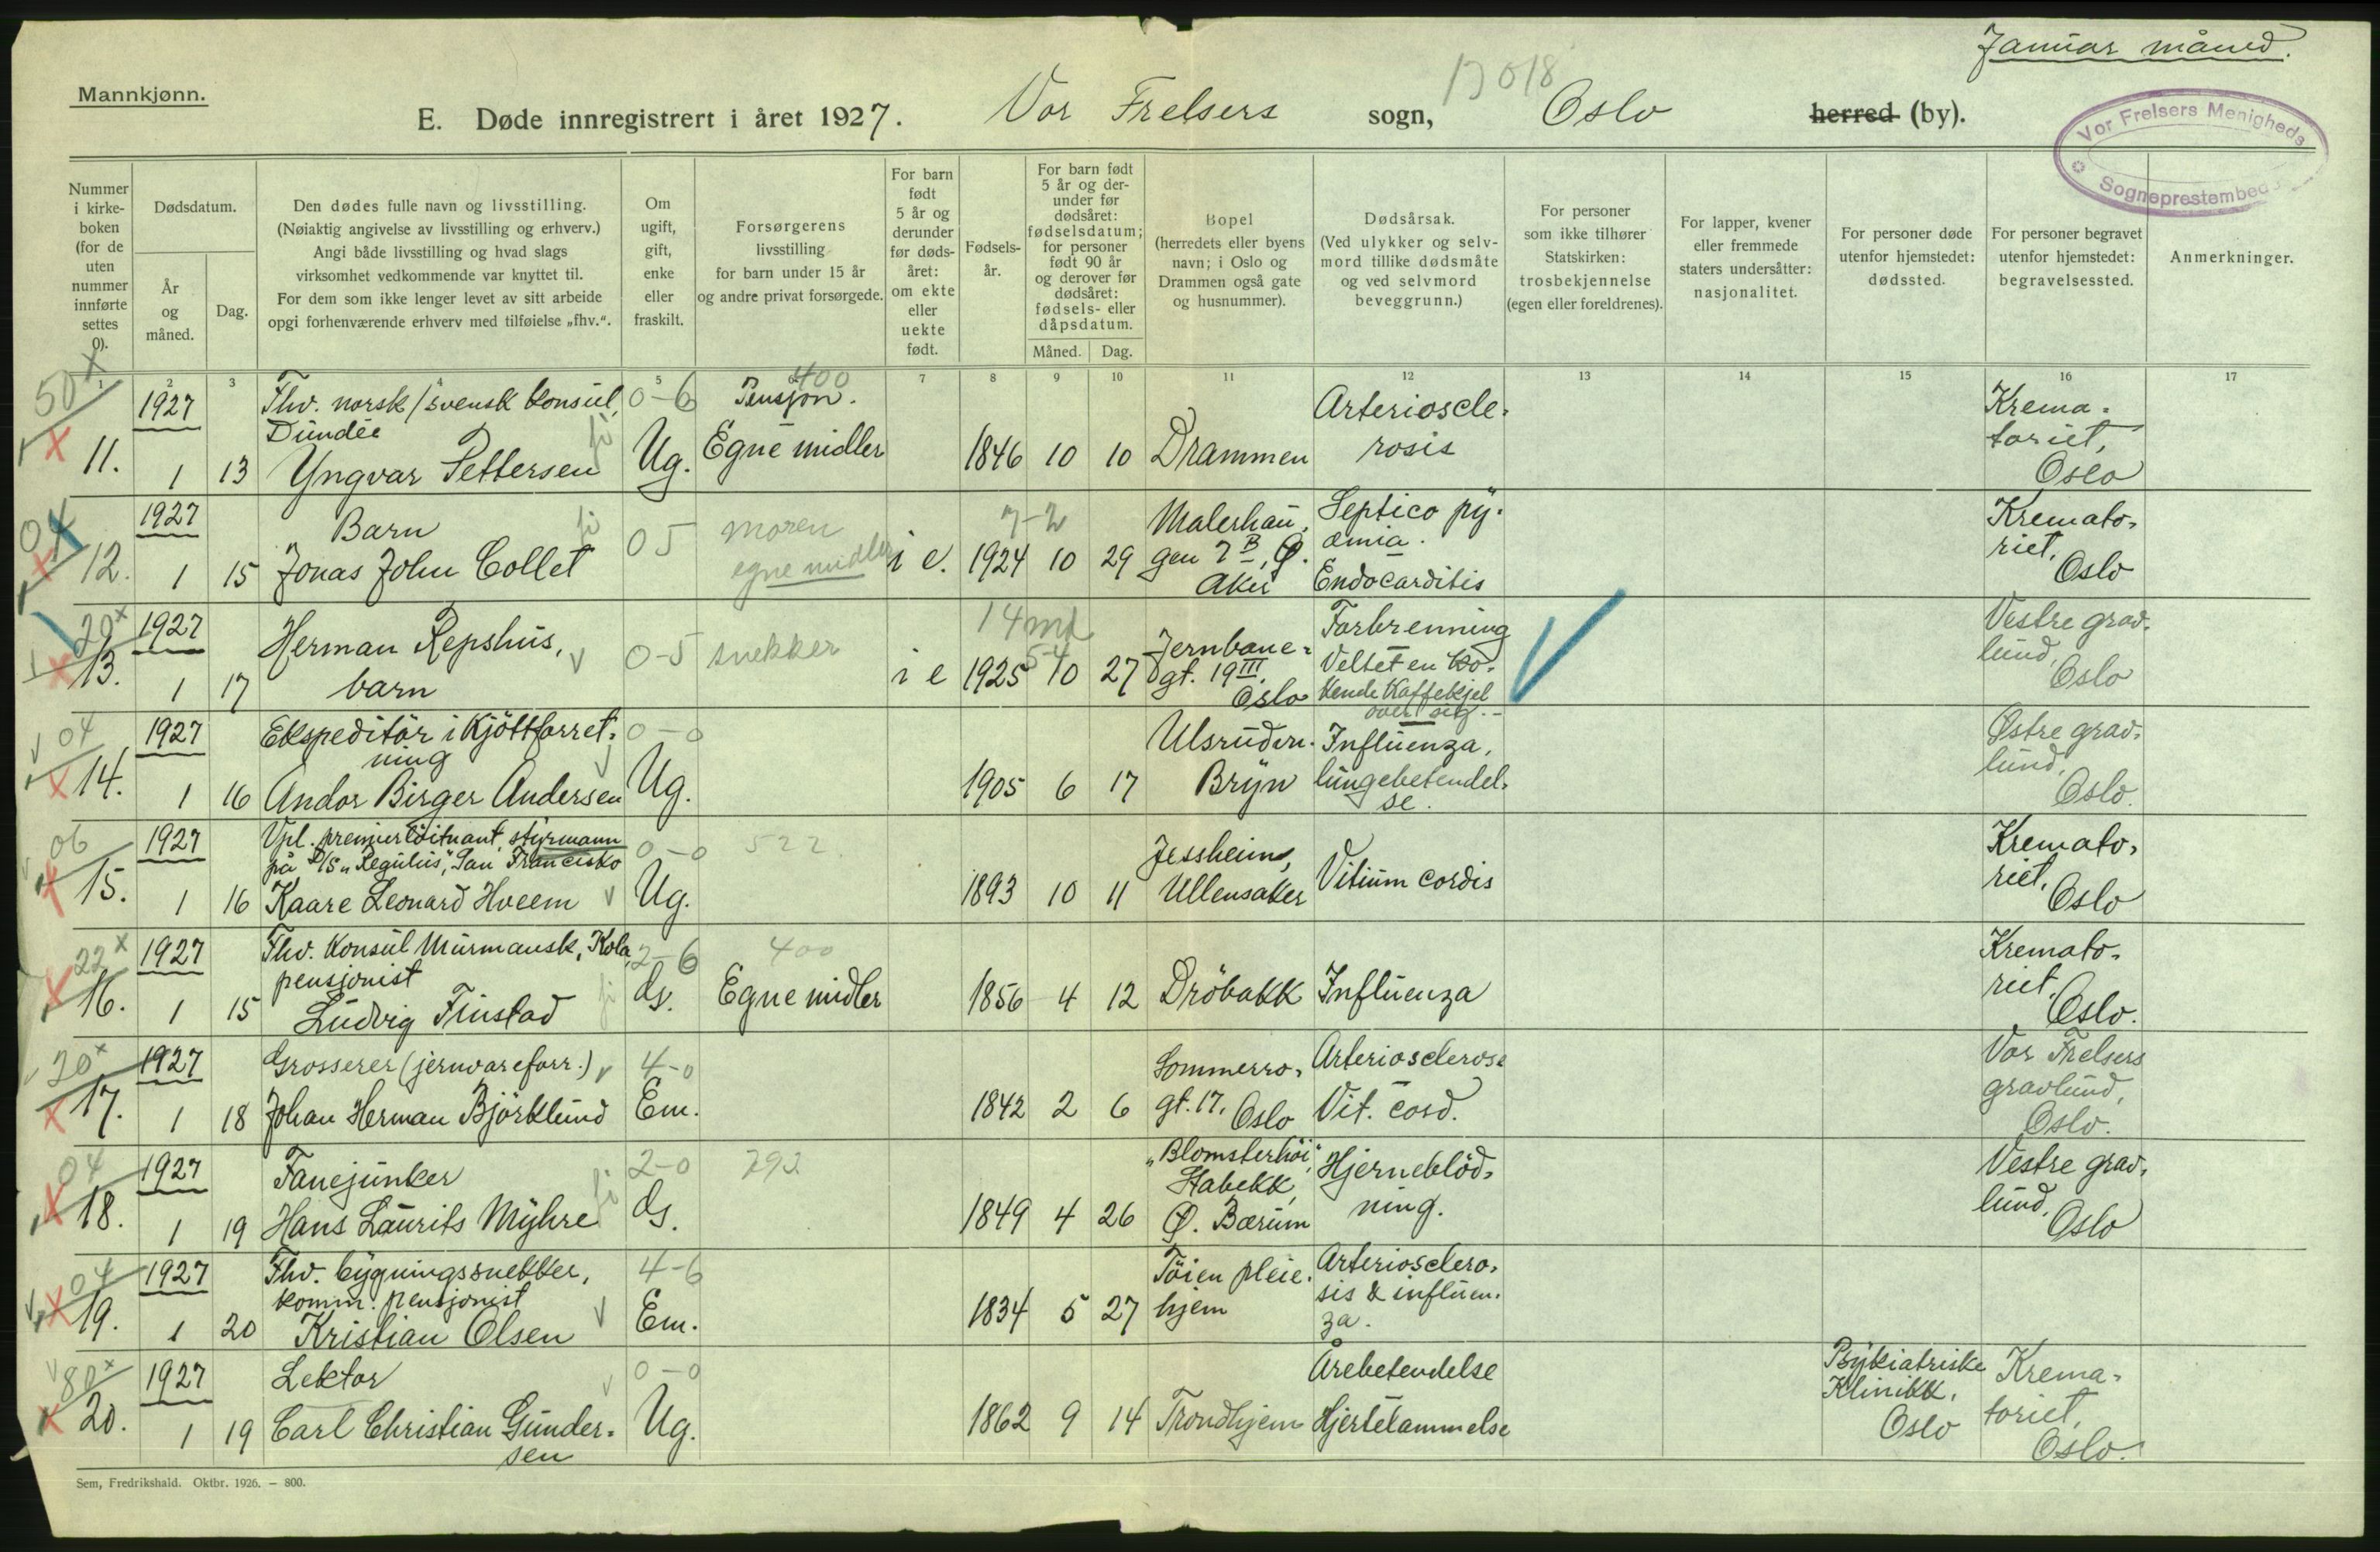 Januar måned.
Mannkjønn.
E. Døde innregistrert i året 1927. Vor Frelsers sogn, Oslo herred (by).
13018
Vor Frelsers Menigheds
Sogneprestembed
Nummer i kirkeboken (for de uten nummer innførte settes 0).
Dødsdatum.
År og måned.
Dag.
Den dødes fulle navn og livsstilling.
(Nøiaktig angivelse av livsstilling og erhverv.)
Angi både livsstilling og hvad slags
virksomhet vedkommende var knyttet til.
For dem som ikke lenger levet av sitt arbeide
opgi forhenværende erhverv med tilføielse „fhv.“.
Om ugift, gift, enke eller fraskilt.
Forsørgerens
livsstilling
for barn under 15 år
og andre privat forsørgede.
For barn født 5 år og derunder før dødsåret: om ekte eller uekte født.
Fødselsår.
For barn født 5 år og derunder før dødsåret: fødselsdatum; for personer født 90 år og derover før dødsåret: fødsels- eller dåpsdatum.
Måned. Dag.
Bopel
(herredets eller byens
navn; i Oslo og
Drammen også gate
og husnummer).
Dødsårsak.
(Ved ulykker og selv-
mord tillike dødsmåte
og ved selvmord
beveggrunn.)
For personer
som ikke tilhører
Statskirken:
trosbekjennelse
(egen eller foreldrenes).
For lapper, kvener
eller fremmede
staters undersåtter:
nasjonalitet.
For personer døde
utenfor hjemstedet:
dødssted.
For personer begravet
utenfor hjemstedet:
begravelsessted.
Anmerkninger.
1 2 3 4 5 6 7 8 9 10 11 12 13 14 15 16 17
50 x 1927 Fhv. norsk/svensk konsul, 0-6 400 Pensjon. Arterioscle- Krema-
Dundée toriet,
11. 1 13 Yngvar Pettersen Ug. Egne midler 1846 10 10 Drammen rosis Oslo
04 1927 Barn 05 moren 7-2 Malerhau- Septico py- Kremato-
12. 1 15 Jonas John Collet egne midler i e. 1924 10 29 gen 7B, Ø. æmia. riet,
Aker Endocarditis Oslo
20 x 1927 Herman Repshus, 0-5 snekker 14 md Jernbane- Forbrenning Vestre grav-
5-4 Veltet en ko- lund,
13. 1 17 barn i e 1925 10 27 gt. 19 III, kende Kaffekjel Oslo
Oslo over sig.-
04 1927 Ekspeditör i Kjöttforret- 0-0 Ulsrudvn. Influenza, Østre grav-
ning lund,
14. 1 16 Andor Birger Andersen Ug. 1905 6 17 Bryn lungebetendel- Oslo.
se.
06 1927 Vpl. premierlöitnant, styrmann 0-0 522 Jessheim, Kremato-
på D/S „Regulus“, San Francisko riet,
15. 1 16 Kaare Leonard Hveem Ug. 1893 10 11 Ullensaker Vitium cordis Oslo
22 x 1927 Fhv. Konsul Murmansk, Kola, 2-6 400 Kremato-
pensjonist riet,
16. 1 15 Ludvig Finstad ds. Egne midler 1856 4 12 Dröbakk Influenza Oslo.
20 x 1927 Grosserer (jernvareforr.) 4-0 Sommerro- Arteriosclerose Vor Frelsers
gravlund,
17. 1 18 Johan Herman Björklund Em. 1842 2 6 gt. 17, Oslo Vit. cord. Oslo.
04 1927 Fanejunker 2-0 792 „Blomsterhöi“, Hjerneblöd- Vestre grav-
Stabekk, lund,
18. 1 19 Hans Laurits Myhre ds. 1849 4 26 Ø. Bærum ning. Oslo
04 1927 Fhv. bygningssnekker, 4-6 Töien pleie- Arteriosclero-
komm. pensjonist sis & influen-
19. 1 20 Kristian Olsen Em. 1834 5 27 hjem za.
80 x 1927 Lektor 0-0 Årebetendelse Psykiatriske Krema-
Klinikk, toriet,
20. 1 19 Carl Christian Gunder- Ug. 1862 9 14 Trondhjem Hjertelammelse Oslo Oslo.
sen
Sem, Fredrikshald. Oktbr. 1926. – 800.